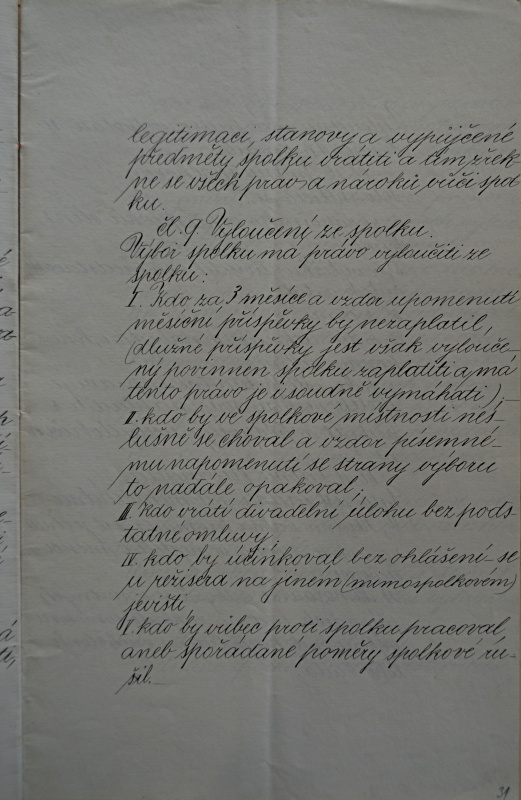 legitimaci, stanovy a vypůjčené
předměty spolku vrátiti a tím zřek
ne se všech práv a nároků vůči spol
ku.
čl. 9. Vyloučení ze spolku.
Výbor spolku má právo vyloučiti ze
spolku:
I. Kdo za 3 měsíce a vzdor upomenutí
měsíční příspěvky by nezaplatil,
(dlužné příspěvky jest však vylouče-
ný povinnen spolku zaplatiti a má
tento právo je i soudně vymáhati);—
II. kdo by ve spolkové místnosti nes-
lušně se choval a vzdor písemné-
mu napomenutí se strany výboru
to nadále opakoval;
III Kdo vrátí divadelní úlohu bez pods-
tatné omluvy;
IV. kdo by účinkoval bez ohlášení-se
u režiséra na jiném (mimospolkovém)
jevišti,
V. kdo by vůbec proti spolku pracoval,
aneb spořádané poměry spolkové ru-
šil.—
31